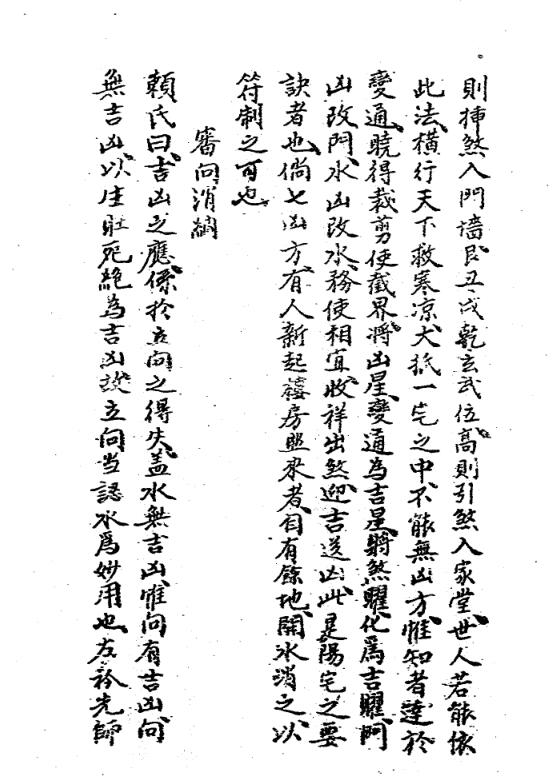 則挿煞入門墻艮丑戌乾玄武位高則引煞入家堂世人若能依
此法横行天下救寒凉大抵一宅之中不能無凶方惟知者達於
變通曉得裁剪使截界將凶星變通為吉星將煞曜化為吉曜門
凶改門水凶改水務使相宜收祥出煞迎吉送凶此是陽宅之要
訣者也倘七凶方有人新起樓房照來者自有餘地開水消之以
符制之可也
審向消納
賴氏曰吉凶之應係於立向之得失盖水無吉凶惟向有吉凶向
無吉凶以生旺死絶為吉凶故立向当認水為妙用也左衿先師